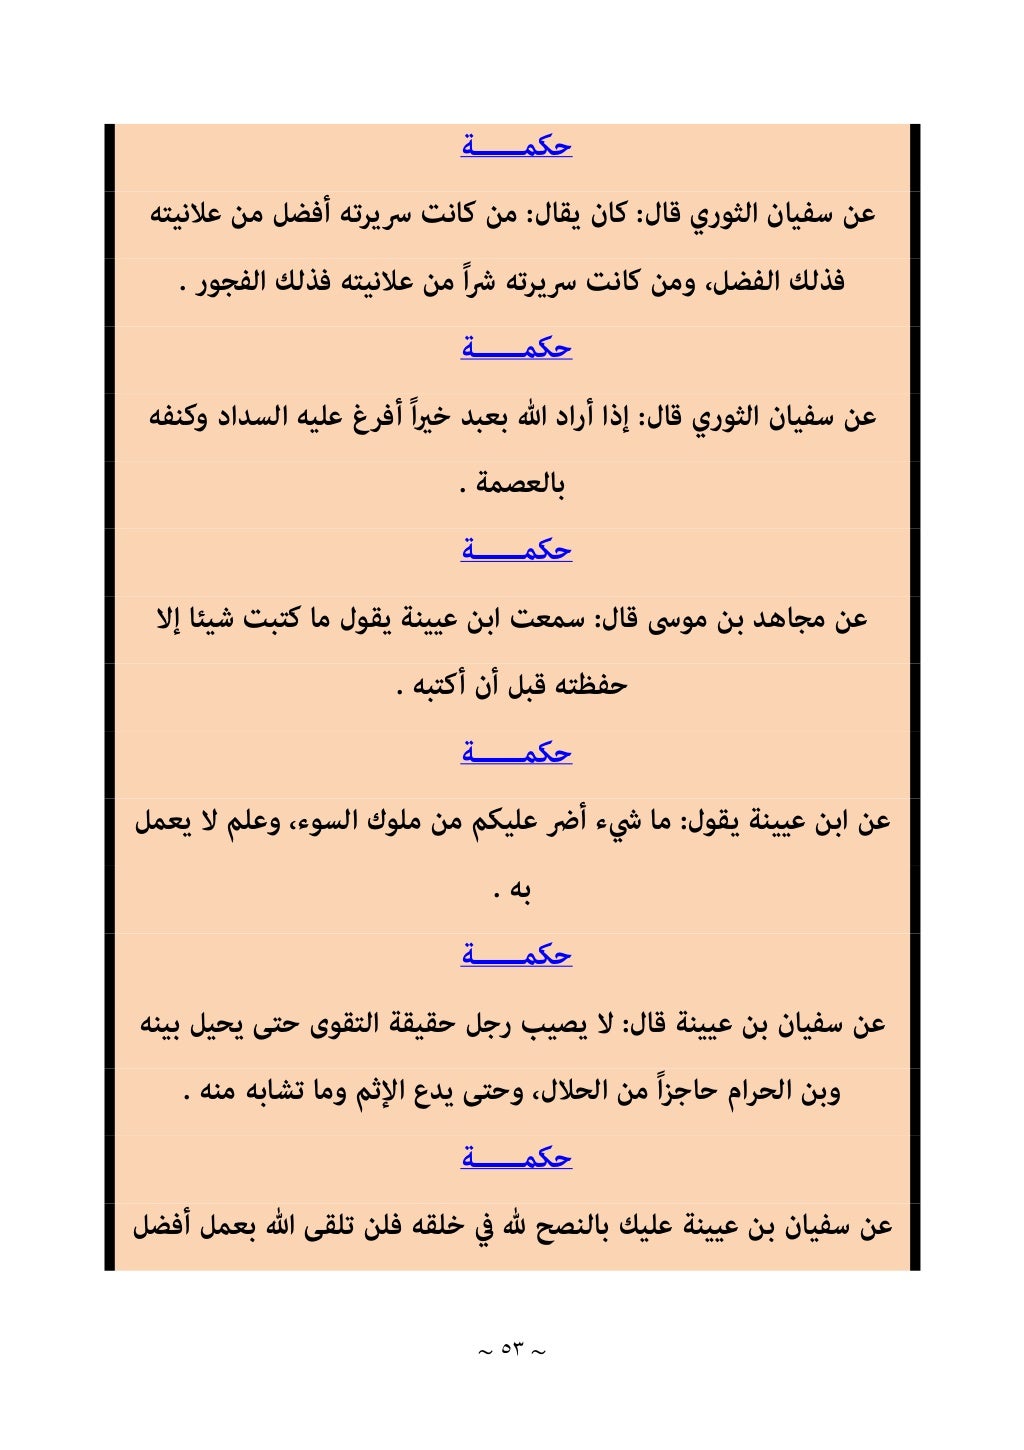 حكمـــــة
عن سفيان الثوري قال: كان يقال: من كانت سريرته أفضل من علانيته
فذلك الفضل، ومن كانت سريرته شراً من علانيته فذلك الفجور .
حكمـــــة
عن سفيان الثوري قال: إذا أراد الله بعبد خيراً أفرغ عليه السداد وكنفه
بالعصمة .
حكمـــــة
عن مجاهد بن موسى قال: سمعت ابن عيينة يقول ما كتبت شيئا إلا
حفظته قبل أن أكتبه .
حكمـــــة
عن ابن عيينة يقول: ما شيء أضر عليكم من ملوك السوء، وعلم لا يعمل
به .
حكمـــــة
عن سفيان بن عيينة قال: لا يصيب رجل حقيقة التقوى حتى يحيل بينه
وبن الحرام حاجزاً من الحلال، وحتى يدع الإثم وما تشابه منه .
حكمـــــة
عن سفيان بن عيينة عليك بالنصح لله في خلقه فلن تلقى الله بعمل أفضل
~ ٥٣ ~